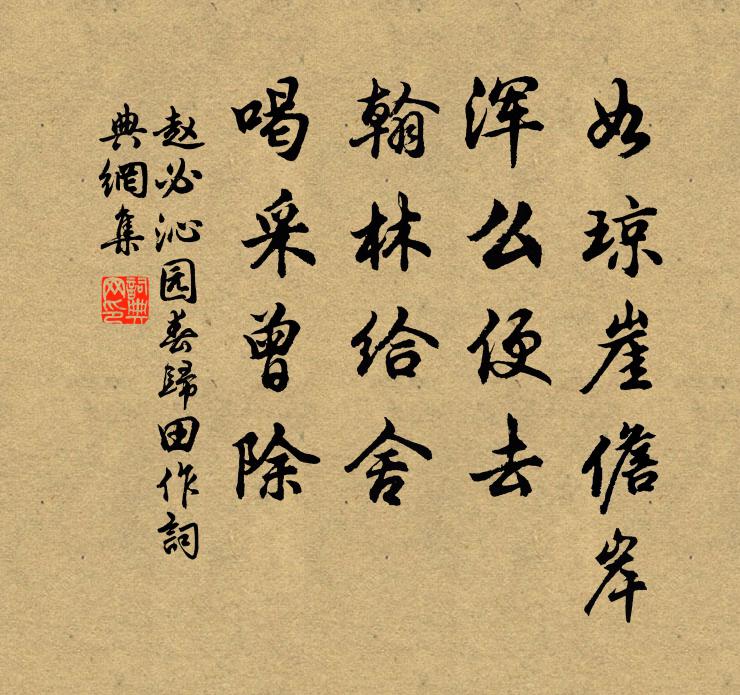 如琼崖儋岸
浑么便去
翰林给舍
喝采曾除
赵必沁园春歸田作詞
典網集
詞典网印